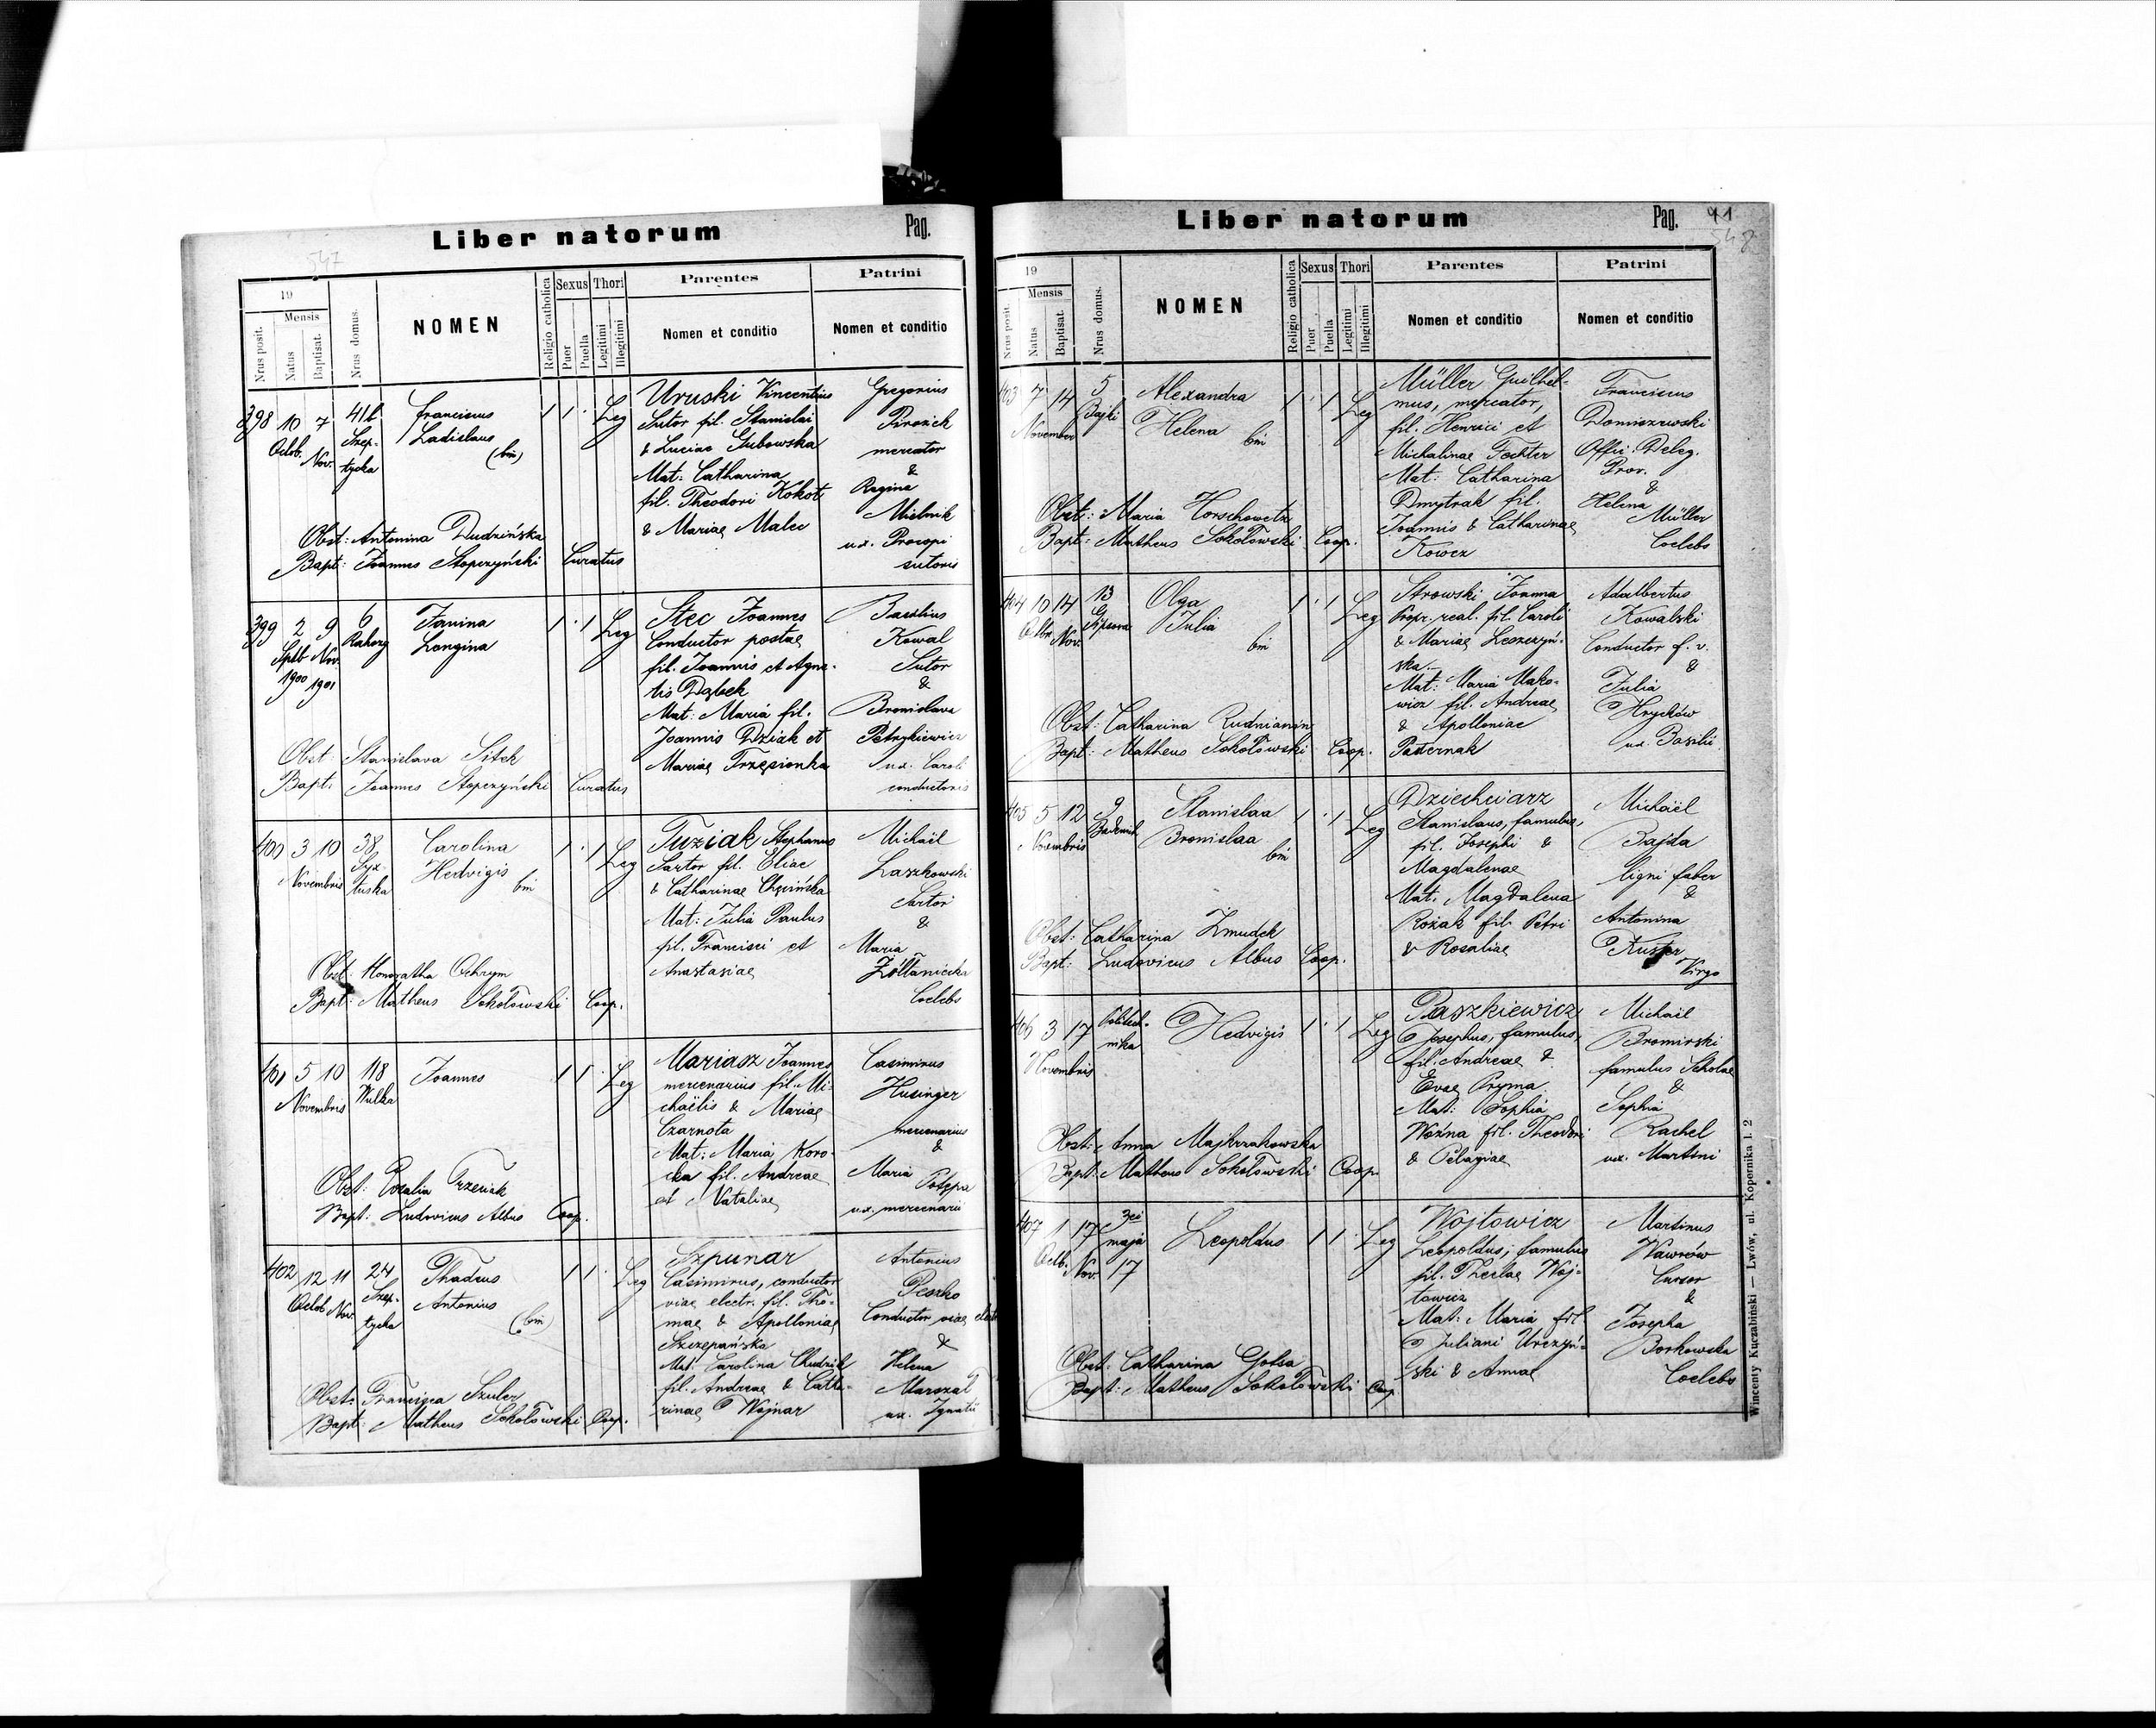 Liber natorum
Pag.
547
19
Mensis
Nrus posit.
Natus
Baptisat.
Nrus domus.
NOMEN
Religio catholica
Sexus
Puer
Puella
Thori
Legitimi
Illegitimi
Parentes
Nomen et conditio
Patrini
Nomen et conditio
398 10 7
Octob. Nov.
Szep-
tycka
Franciscus
Ladislaus
(bm)
1 1 Leg
Uruski Vincentius
Sutor fil. Stanislai
& Luciae Gubowska
Mat: Catharina
fil. Theodori Kokot
& Mariae Malec
Gregorius
Pirozek
mercator
&
Regina
Mielnik
ux. Procopi
sutoris
Obst: Antonina Dudzińska
Bapt: Joannes Stopczyński Curatus
399 2 9 6
Sptb Nov.
1900 1901
Janina
Longina
1 1 Leg
Stec Joannes
Conductor postae
fil. Joannis et Agne-
tis Dąbek
Mat: Maria fil.
Joannis Dziak et
Mariae Trzęsionka
Basilius
Kowal
Sutor
&
Bronislava
Petrykiewicz
ux. Caroli
conductoris
Obst Stanislava Sitek
Bapt. Joannes Stopczyński Curatus
400 3 10 38
Novembris
Syx-
tuska
Carolina
Hedvigis
bm
1 1 Leg
Tuziak Stephanus
Sartor fil. Eliae
& Catharinae Chęcińska
Mat: Julia Paulus
fil. Francisci et
Anastasiae
Michaël
Laszkowski
Sartor
&
Maria
Żółtaniecka
Coelebs
Obst: Honoratha Ochrym
Bapt: Matheus Sokołowski Coop.
401 5 10 118
Novembris
Wulka
Joannes
1 1 Leg
Mariasz Joannes
mercenarius fil. Mi-
chaëlis & Mariae
Czarnota
Mat: Maria Koro-
cka fil. Andreae
et Nataliae
Casimirus
Husinger
mercenarius
&
Maria
Potępa
ux. mercenarii
Obst: Rozalia Trzeciak
Bapt: Ludovicus Albus Coop.
402 12 11 24
Octob Nov.
Szep-
tycka
Thadeus
Antonius
(bm)
1 1 Leg
Szpunar
Casimirus, conductor
viae electr. fil. Tho-
mae & Apolloniae
Szczepańska
Mat: Carolina Chudzik
fil. Andreae & Catha-
rinae Wojnar
Antonius
Peszko
Conductor viae
&
Helena
Marszal
ux. Ignatii
Obst: Francisca Szuler
Bapt: Matheus Sokołowski Coop.
Liber natorum
Pag. 41
548
19
Mensis
Nrus posit.
Natus
Baptisat.
Nrus domus.
NOMEN
Religio catholica
Sexus
Puer
Puella
Thori
Legitimi
Illegitimi
Parentes
Nomen et conditio
Patrini
Nomen et conditio
403 7 14 5
November
Bajki
Alexandra
Helena
bm
1 1 Leg
Müller Guilhel-
mus, mercator,
fil. Henrici et
Michalinae Fechter
Mat: Catharina
Dmytrak fil.
Joannis & Catharinae
Kowcz
Franciscus
Domiszewski
Offic. Deleg.
Prov.
&
Helena
Müller
Coelebs
Obst: Maria Horschowetz
Bapt: Matheus Sokołowski Coop.
404 10 14 13
Octbr. Nov.
Gipsowa
Olga
Julia
bm
1 1 Leg
Strowski Joanna
Propr. real. fil. Caroli
& Mariae Leszczyń-
ska.
Mat: Maria Mako-
wicz fil. Andreae
& Apolloniae
Pasternak
Adalbertus
Kowalski
Conductor f. v.
&
Julia
Hryćków
ux. Basilii
Obst: Catharina Rudnianin
Bapt: Matheus Sokołowski Coop.
405 5 12 9
Novembris
Stanislaa
Bronislaa
bm
1 1 Leg
Dziechciarz
Stanislaus, famulus,
fil. Josephi &
Magdalenae
Mat. Magdalena
Rożak fil. Petri
& Rosaliae
Michaël
Bajda
ligni faber
&
Antonina
Kuster
Virgo
Obst: Catharina Żmudek
Bapt: Ludovicus Albus Coop.
406 3 17
Novembris
Politech-
nika
Hedvigis
1 1 Leg
Paszkiewicz
Josephus, famulus,
fil. Andreae &
Evae Pryma
Mat: Sophia
Woźna fil. Theodori
& Pelagiae
Michaël
Bromirski
famulus Scholae
&
Sophia
Rachel
ux. Martini
Obst: Anna Majkrzakowska
Bapt: Matheus Sokołowski Coop
407 1 17
Octb. Nov.
3ci
maja
17
Leopoldus
1 1 Leg
Wojtowicz
Leopoldus, famulus
fil. Theclae Woj-
towicz
Mat: Maria fil.
Juliani Urczyń-
ski & Annae
Martinus
Wawrów
Cursor
&
Josepha
Borkowska
Coelebs
Obst: Catharina Gołsa
Bapt: Matheus Sokołowski Coop.
Wincenty Kuczabiński — Lwów, ul. Kopernika l. 2